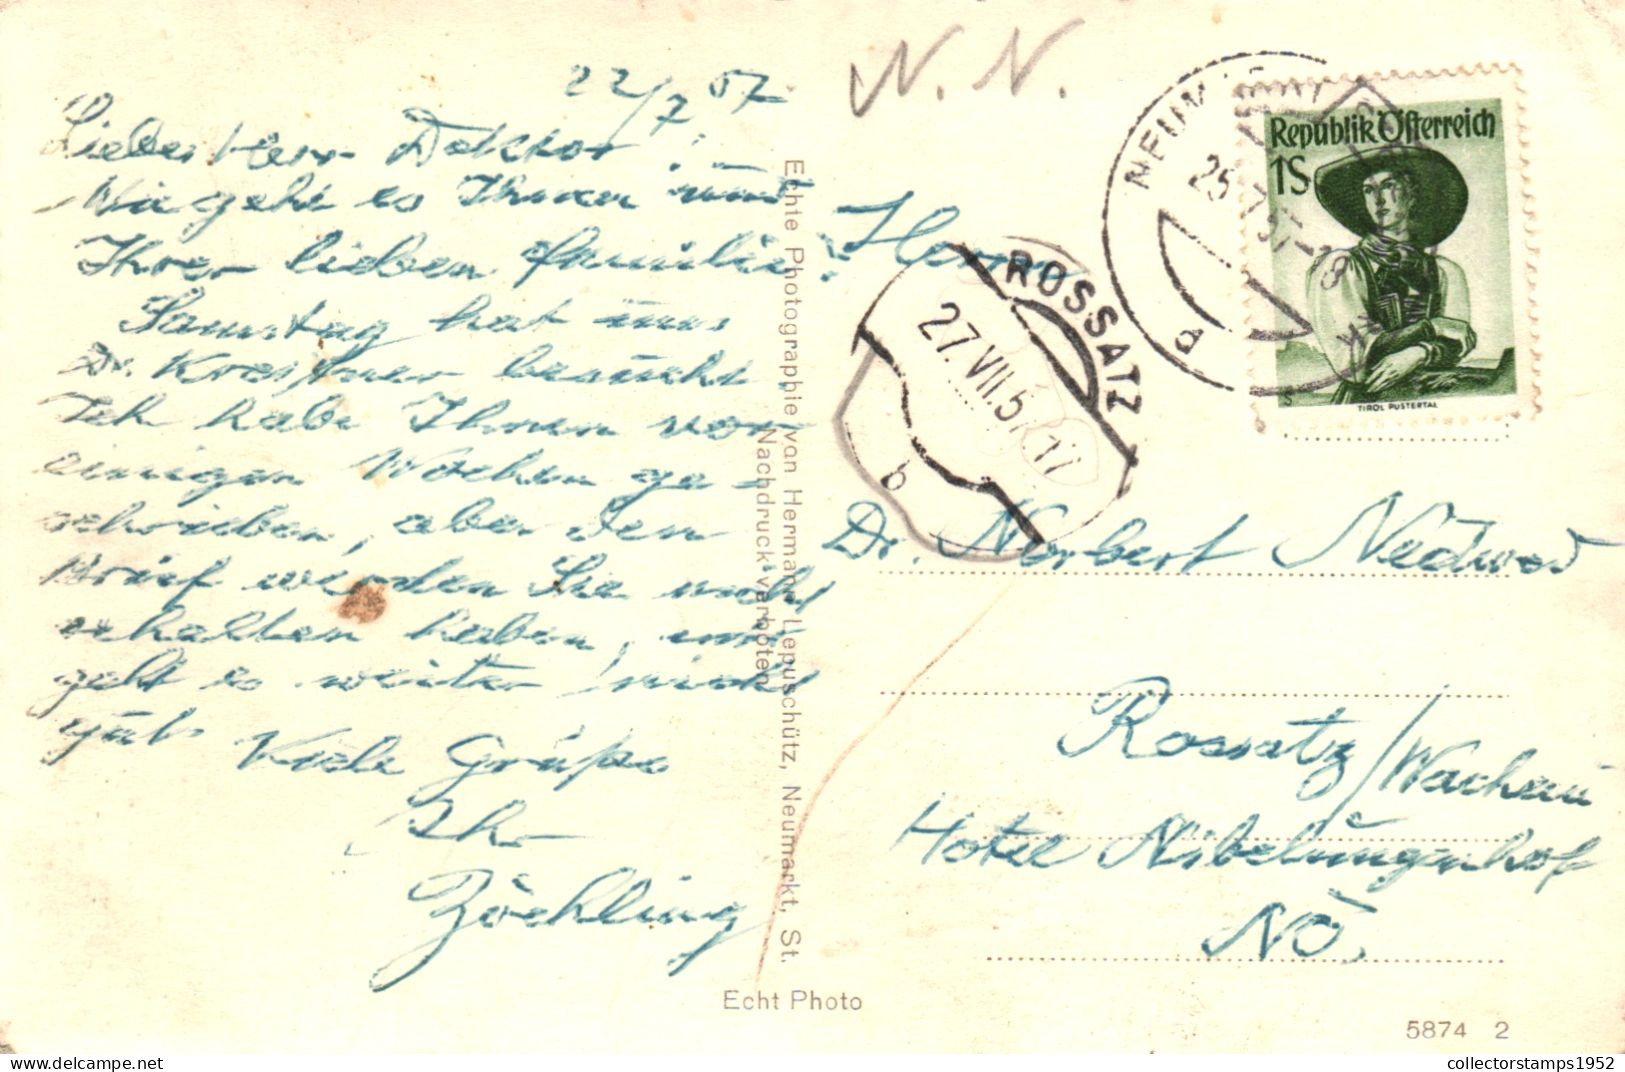 22/7 57
Lieber Herr Doktor!
Wie geht es Ihnen und
Ihrer lieben Familie?
Samstag hat uns
Dr. besucht
Ich habe Ihnen vor
einigen Wochen ge-
schrieben, aber den
Brief werden Sie nicht
erhalten haben, mir
geht es weiter nicht
gut. Viele Grüße
Ihr
Zöchling
Echte Photographie von Hermann Lepuschütz, Neumarkt, St.
Nachdruck verboten
Echt Photo
N. N.
Republik Österreich
1S
TIROL PUSTERTAL
25.7.57-18
d
ROSSATZ
27.VII.57.17
b
Herrn
Dr. Norbert Nedwed
Rossatz/Wachau
Hotel Nibelungenhof
NÖ.
5874 2
collectorstamps1952